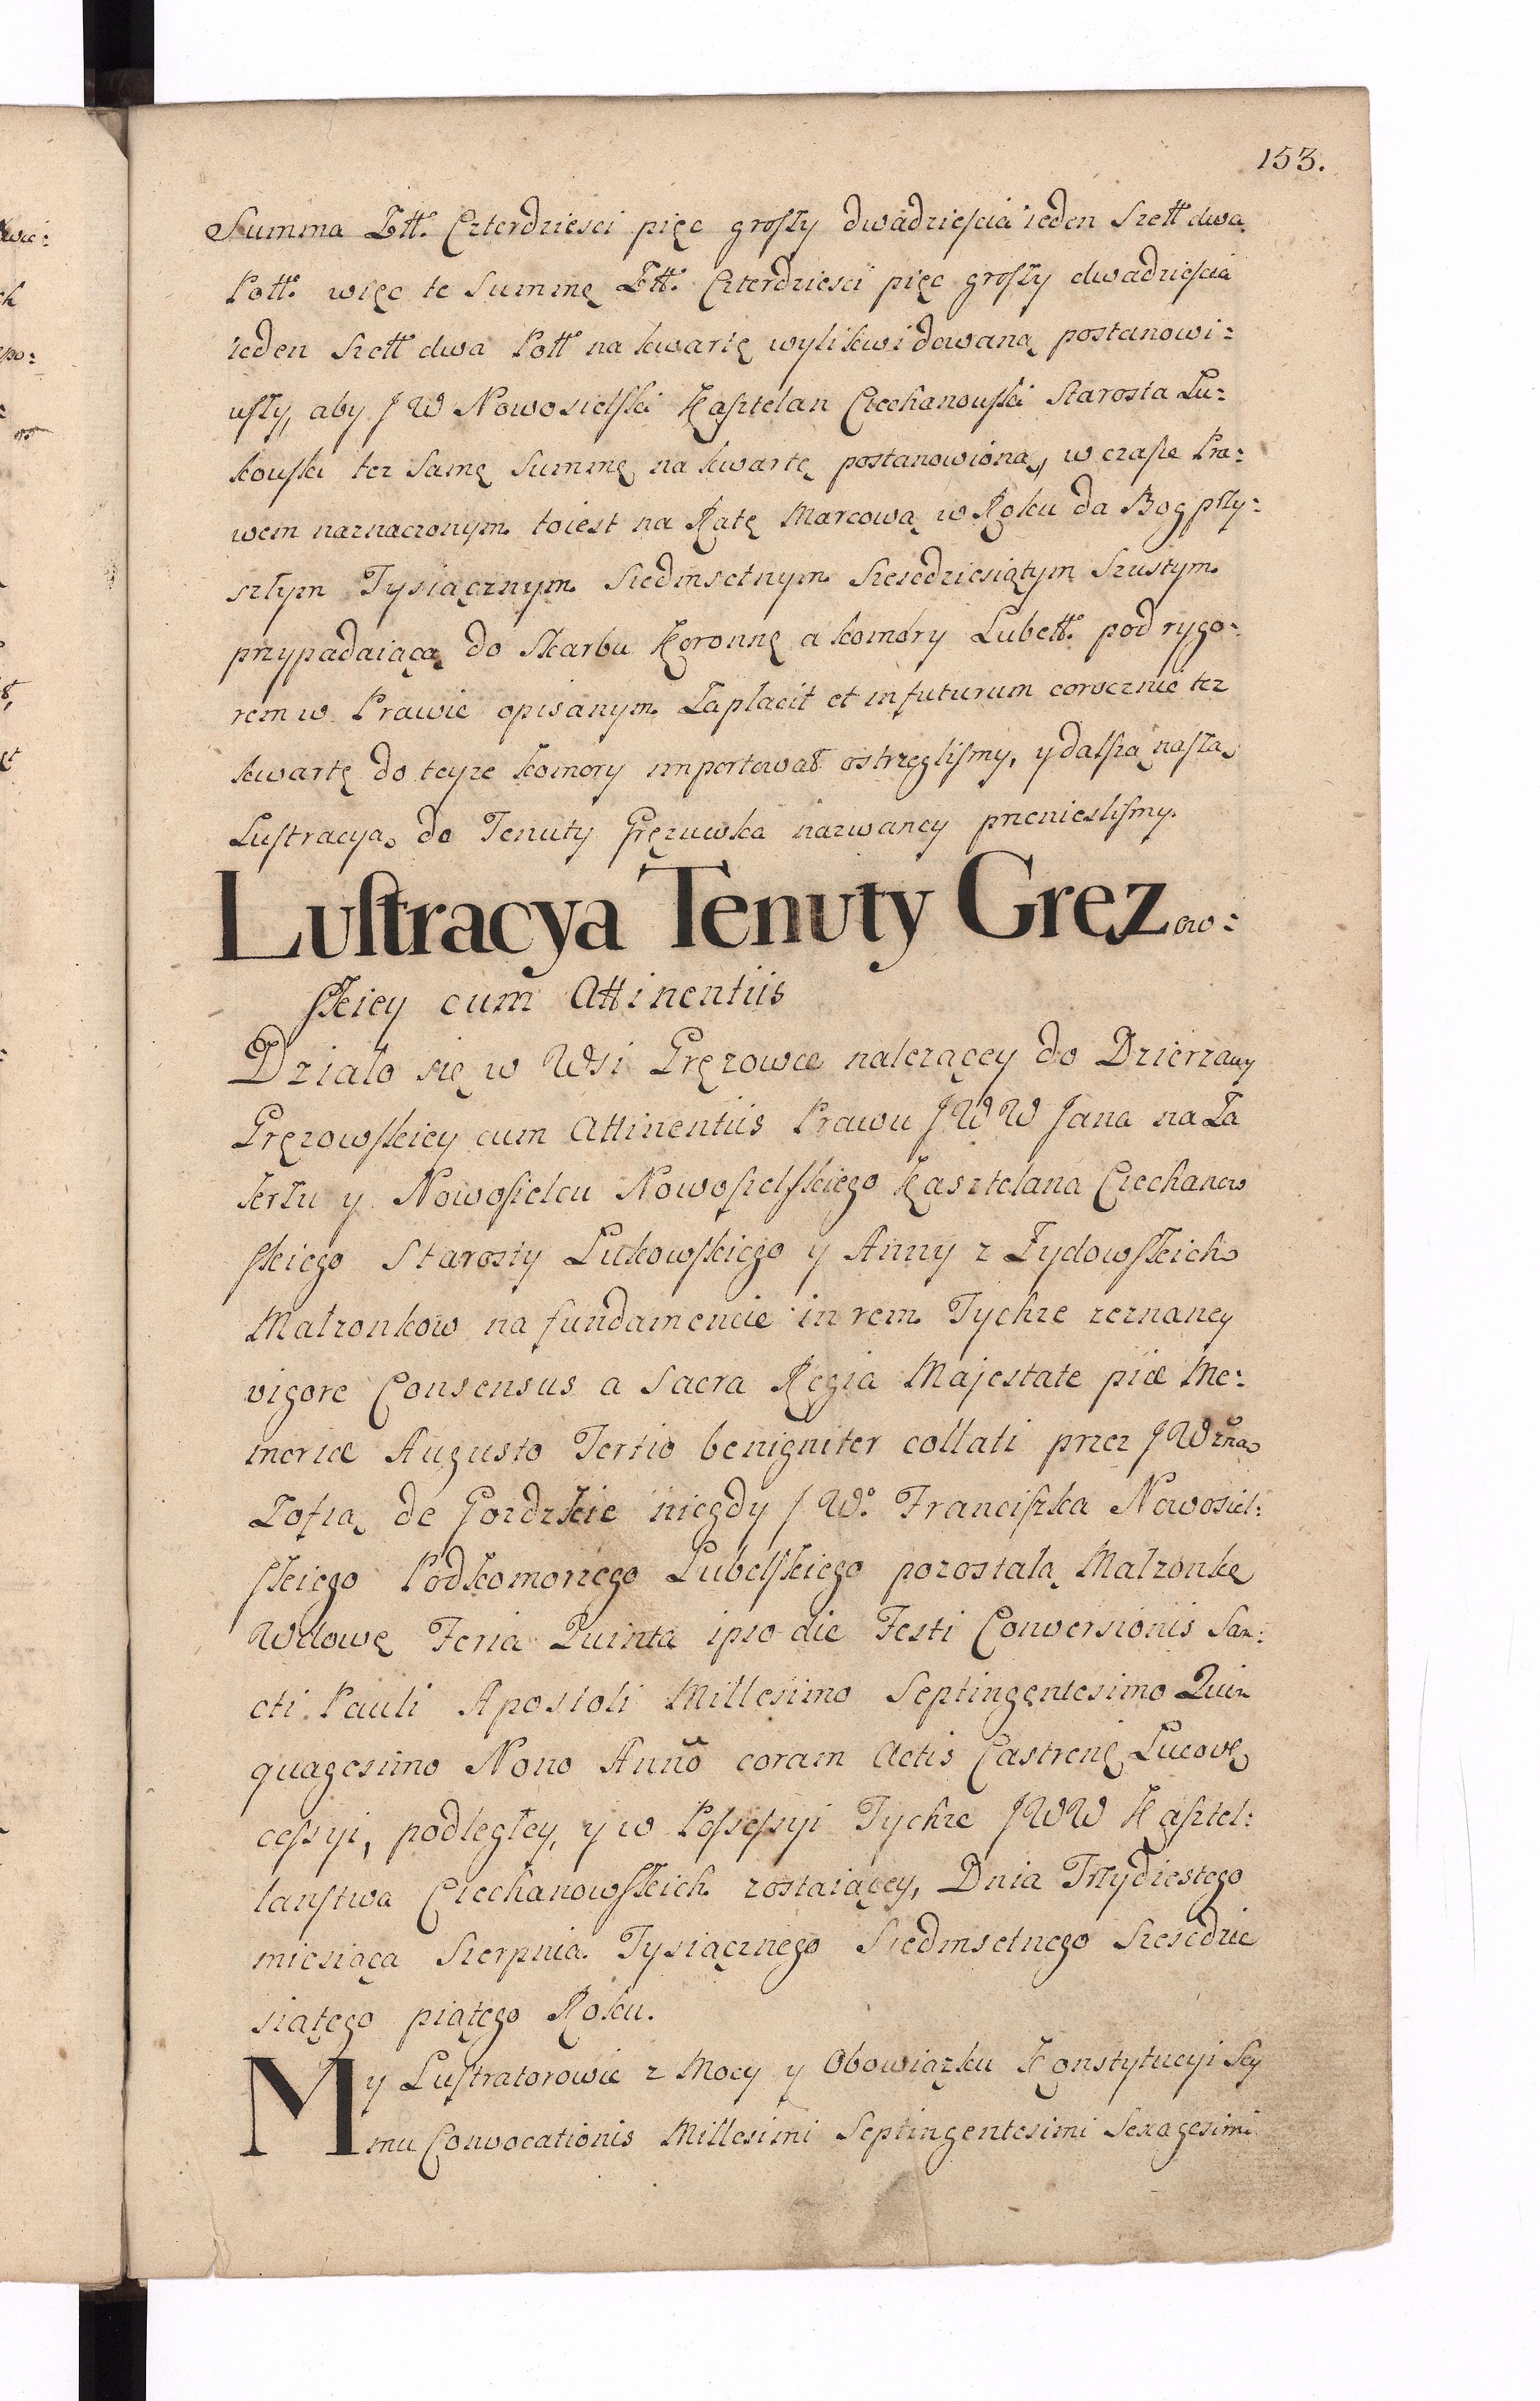 153.
Summa Złł. Czterdziesci pięc groszy dwadziescia ieden Szell dwa
Poll. więc te Summę Złł. Czterdziesci pięc groszy dwadziescia
ieden Szell dwa Poll na kwartę wylikwidowaną postanowi:
wszy, aby J W Nowosielski Kasztelan Czechanowski Starosta Lu:
kowski tez Samę Summę na kwartę postanowioną, w czasie Pra:
wem naznaczonym toiest na Ratę Marcową w Roku da Bog przy:
szłym Tysiącznym Siedmsetnym Szescdziesiątym Szustym
przypadaiącą do Skarbu Koronnę a komory Lubell. pod rygo:
rem w Prawie opisanym Zapłacił et in futurum corocznie tez
kwartę do teyze komory importował ostrzeglismy, y dalszą naszą
Lustracyą do Tenuty Gręzuwka nazwaney przenieslismy.
Lustracya Tenuty Gręzow:
skiey cum Attinentiis
Działo się w Wsi Gręzowce nalezącey do Dzierzawy
Gręzowskiey cum Attinentiis Prawu J W W Jana na Za
kerzu y Nowosielcu Nowosielskiego Kasztelana Czechanow
skiego Starosty Lukowskiego y Anny z Zydowskich
Malzonkow na fundamencie in rem Tychze zeznaney
vigore Consensus a Sacra Regia Majestate piæ Me:
moriæ Augusto Tertio benigniter collati przez J Wzną
Zofią de Gozdzkie niegdy J W. Franciszka Nowosiel:
skiego Podkomorzego Lubelskiego pozostałą Malzonkę
Wdowę Feria Quinta ipso die Festi Conversionis San:
cti Pauli Apostoli Millesimo Septingentesimo Quin
quagesimo Nono Anno coram Actis Castrenę Lucovę
cessyi, podległey, y w Possessyi Tychze J W W Kasztel:
lanstwa Czechanowskich zostaiącey, Dnia Trzydiestego
miesiąca Sierpnia Tysiącznego Siedmsetnego Szescdzie
siątego piątego Roku.
My Lustratorowie z Mocy y Obowiązku Konstytucyi Sey
mu Convocationis Millesimi Septingentesimi Sexagesimi